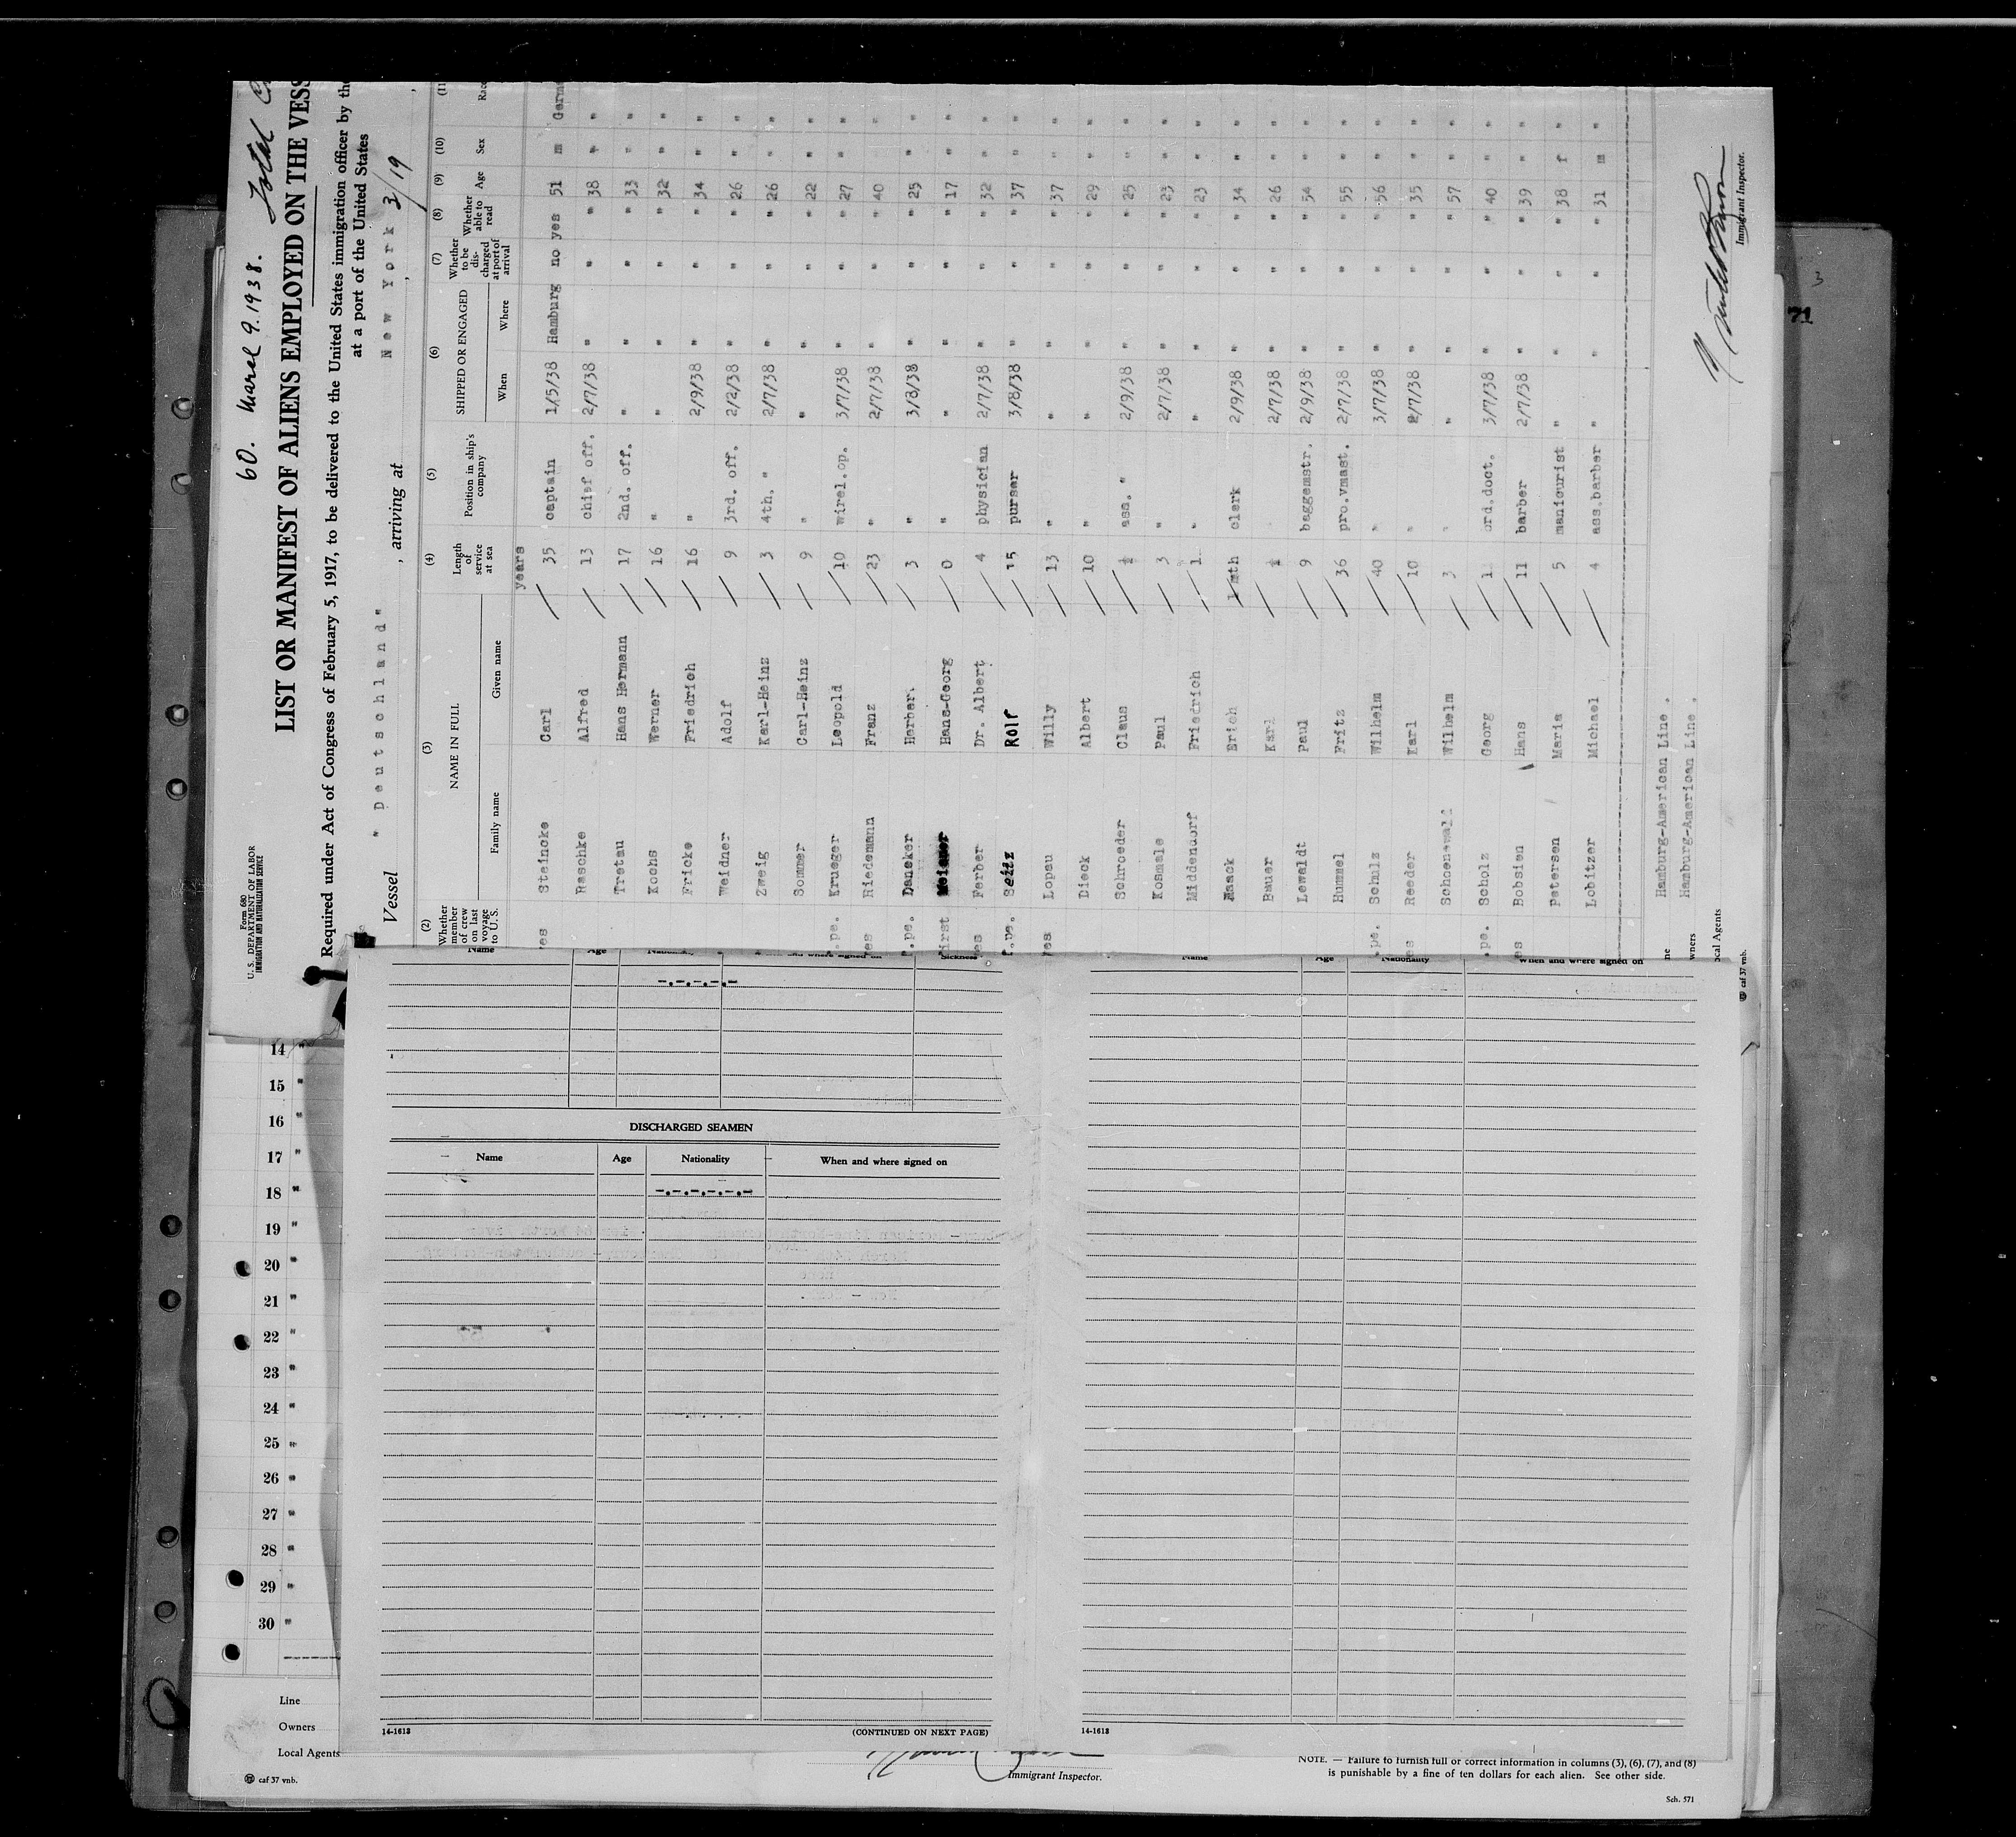 60. March 9. 1938.
Form 680
U. S. DEPARTMENT OF LABOR
IMMIGRATION AND NATURALIZATION SERVICE
LIST OR MANIFEST OF ALIENS EMPLOYED ON THE VESS
Required under Act of Congress of February 5, 1917, to be delivered to the United States immigration officer by the
at a port of the United States
Vessel " Deutschland " , arriving at New York , 3/19
(2) (3) (4) (5) (6) (7) (8) (9) (10) (11
Whether member of crew on last voyage to U. S. NAME IN FULL Length of service at sea Position in ship's company SHIPPED OR ENGAGED Whether to be discharged at port of arrival Whether able to read Age Sex Rac
Family name Given name When Where
years
es Steincke Carl 35 captain 1/5/38 Hamburg no yes 51 m Germa
Raschke Alfred 13 chief off. 2/7/38 " " " 38 " "
Tretau Hans Hermann 17 2nd. off. " " " " 33 " "
Kochs Werner 16 " " " " " 32 " "
Fricke Friedrich 16 " 2/9/38 " " " 34 " "
Weidner Adolf 9 3rd. off. 2/2/38 " " " 26 " "
Zweig Karl-Heinz 3 4th. " 2/7/38 " " " 26 " "
Sommer Carl-Heinz 9 " " " " " 22 " "
.pe. Krueger Leopold 10 wirel.op. 3/7/38 " " " 27 " "
es Riedemann Franz 23 " 2/7/38 " " " 40 "
.pe. Daneker Herber. 3 " 3/8/38 " " " 25 " "
irst Hans-Georg 0 " " " " " 17 " "
es Ferber Dr. Albert 4 physician 2/7/38 " " " 32 " "
.pe. Seitz Rolf 15 purser 3/8/38 " " " 37 " "
yes Lopau Willy 13 " " " " " 37 " "
Dieck Albert 10 " " " " " 29 " "
Schroeder Claus ½ ass. " 2/9/38 " " " 25 " "
Kosmale Paul 3 " 2/7/38 " " " 23 " "
Middendorf Friedrich 1 " " " " " 23 " "
Haack Erich 1 mth clerk 2/9/38 " " " 34 " "
Bauer Karl ½ 2/7/38 " " " 26 " "
Lewaldt Paul 9 baggemstr. 2/9/38 " " " 54 " "
Hummel Fritz 36 pro.vmast. 2/7/38 " " " 55 " "
.pe. Schulz Wilhelm 40 " 3/7/38 " " " 56 " "
es Reeder Karl 10 " 2/7/38 " " " 35 " "
Schoenewald Wilhelm 3 " " " " " 57 " "
.pe. Scholz Georg 1 ord.doct. 3/7/38 " " " 40 " "
es Bobsien Hans 11 barber 2/7/38 " " " 39 " "
Petersen Maria 5 manicurist " " " " 38 f "
Lobitzer Michael 4 ass.barber " " " " 31 m "
ne Hamburg-American Line .
wners Hamburg-American Line .
ocal Agents
caf 37 vnb.
Immigrant Inspector.
3
71
Name Age Nationality when and where signed on Sickness
Name Age Nationality When and where signed on
-.-.-.-.-
DISCHARGED SEAMEN
Name Age Nationality When and where signed on
-.-.-.-.-.-
14 "
15 "
16 "
17 "
18 "
19 "
20 "
21 "
22 "
23 "
24 "
25 "
26 "
27 "
28 "
29 "
30 "
14-1613 (CONTINUED ON NEXT PAGE)
14-1613
Line
Owners
Local Agents
caf 37 vnb.
Immigrant Inspector.
NOTE. — Failure to furnish full or correct information in columns (3), (6), (7), and (8)
is punishable by a fine of ten dollars for each alien. See other side.
Sch. 571